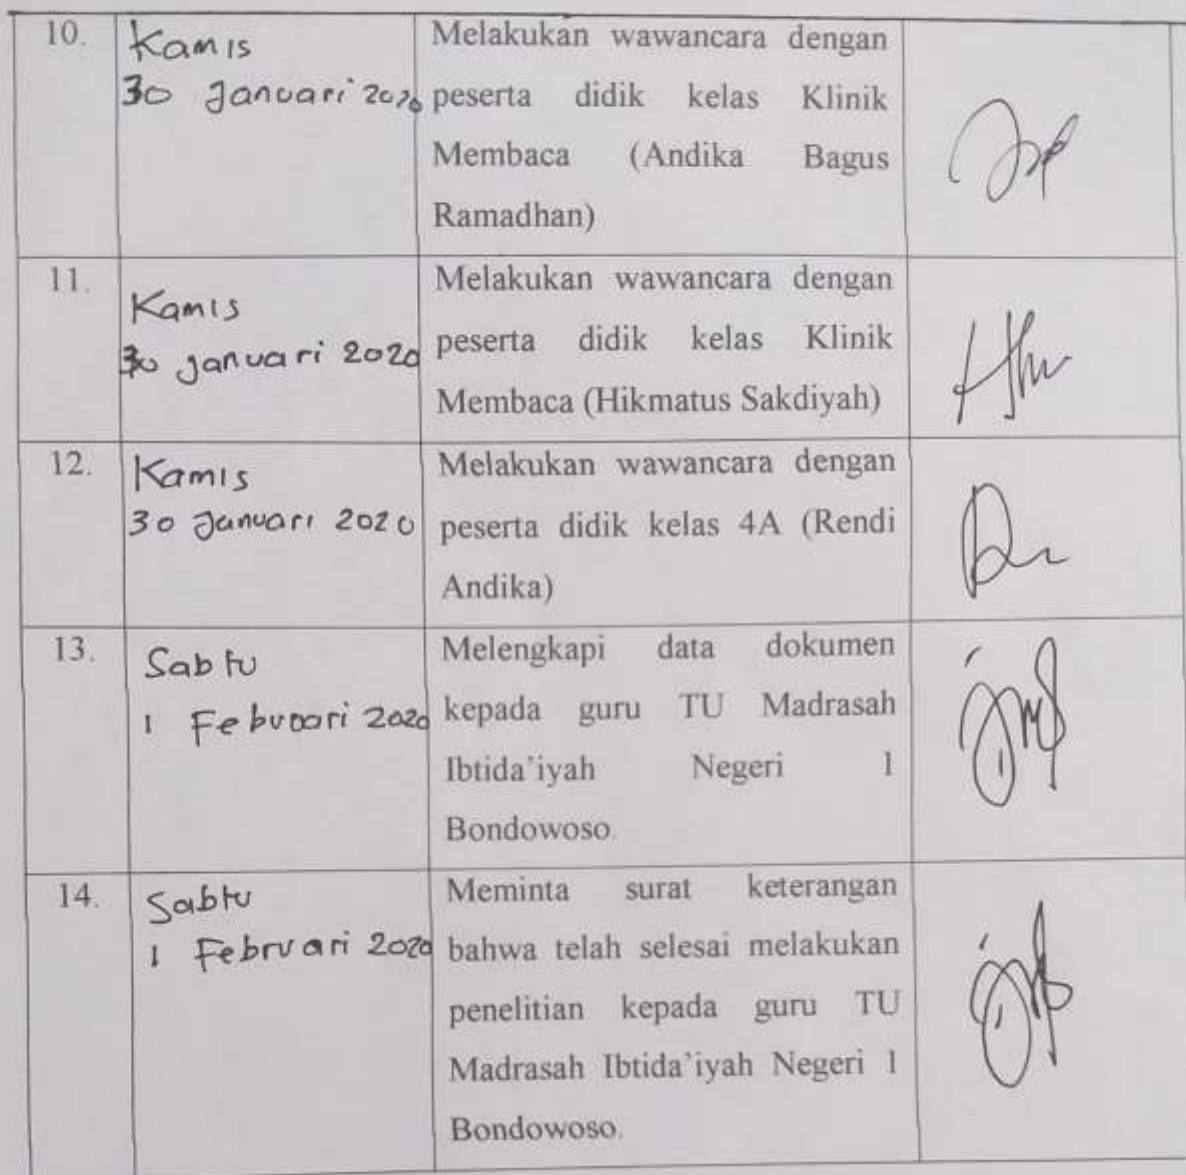 10.
Kamis
30 Januari 2020
Melakukan wawancara dengan
peserta didik kelas Klinik
Membaca (Andika Bagus
Ramadhan)
11.
Kamis
30 januari 2020
Melakukan wawancara dengan
peserta didik kelas Klinik
Membaca (Hikmatus Sakdiyah)
12.
Kamis
30 Januari 2020
Melakukan wawancara dengan
peserta didik kelas 4A (Rendi
Andika)
13.
Sabtu
1 Februari 2020
Melengkapi data dokumen
kepada guru TU Madrasah
Ibtida'iyah Negeri 1
Bondowoso.
14.
Sabtu
1 Februari 2020
Meminta surat keterangan
bahwa telah selesai melakukan
penelitian kepada guru TU
Madrasah Ibtida'iyah Negeri 1
Bondowoso.